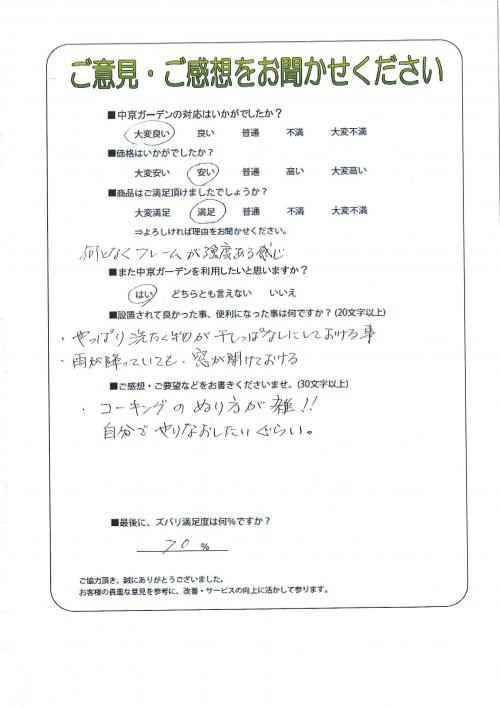 ご意見・ご感想をお聞かせください
■中京ガーデンの対応はいかがでしたか？
大変良い 良い 普通 不満 大変不満
■価格はいかがでしたか？
大変安い 安い 普通 高い 大変高い
■商品はご満足頂けましたでしょうか？
大変満足 満足 普通 不満 大変不満
⇒よろしければ理由をお聞かせください。
何となくフレームが強度ある感じ
■また中京ガーデンを利用したいと思いますか？
はい どちらとも言えない いいえ
■設置されて良かった事、便利になった事は何ですか？(20文字以上)
・やっぱり洗たく物が干しっぱなしにしておける事
・雨が降っていても、窓が開けておける
■ご感想・ご要望などをお書きくださいませ。(30文字以上)
・コーキングのぬり方が雑!!
自分でやりなおしたいぐらい。
■最後に、ズバリ満足度は何％ですか？
70 %
ご協力頂き、誠にありがとうございました。
お客様の貴重な意見を参考に、改善・サービスの向上に活かして参ります。